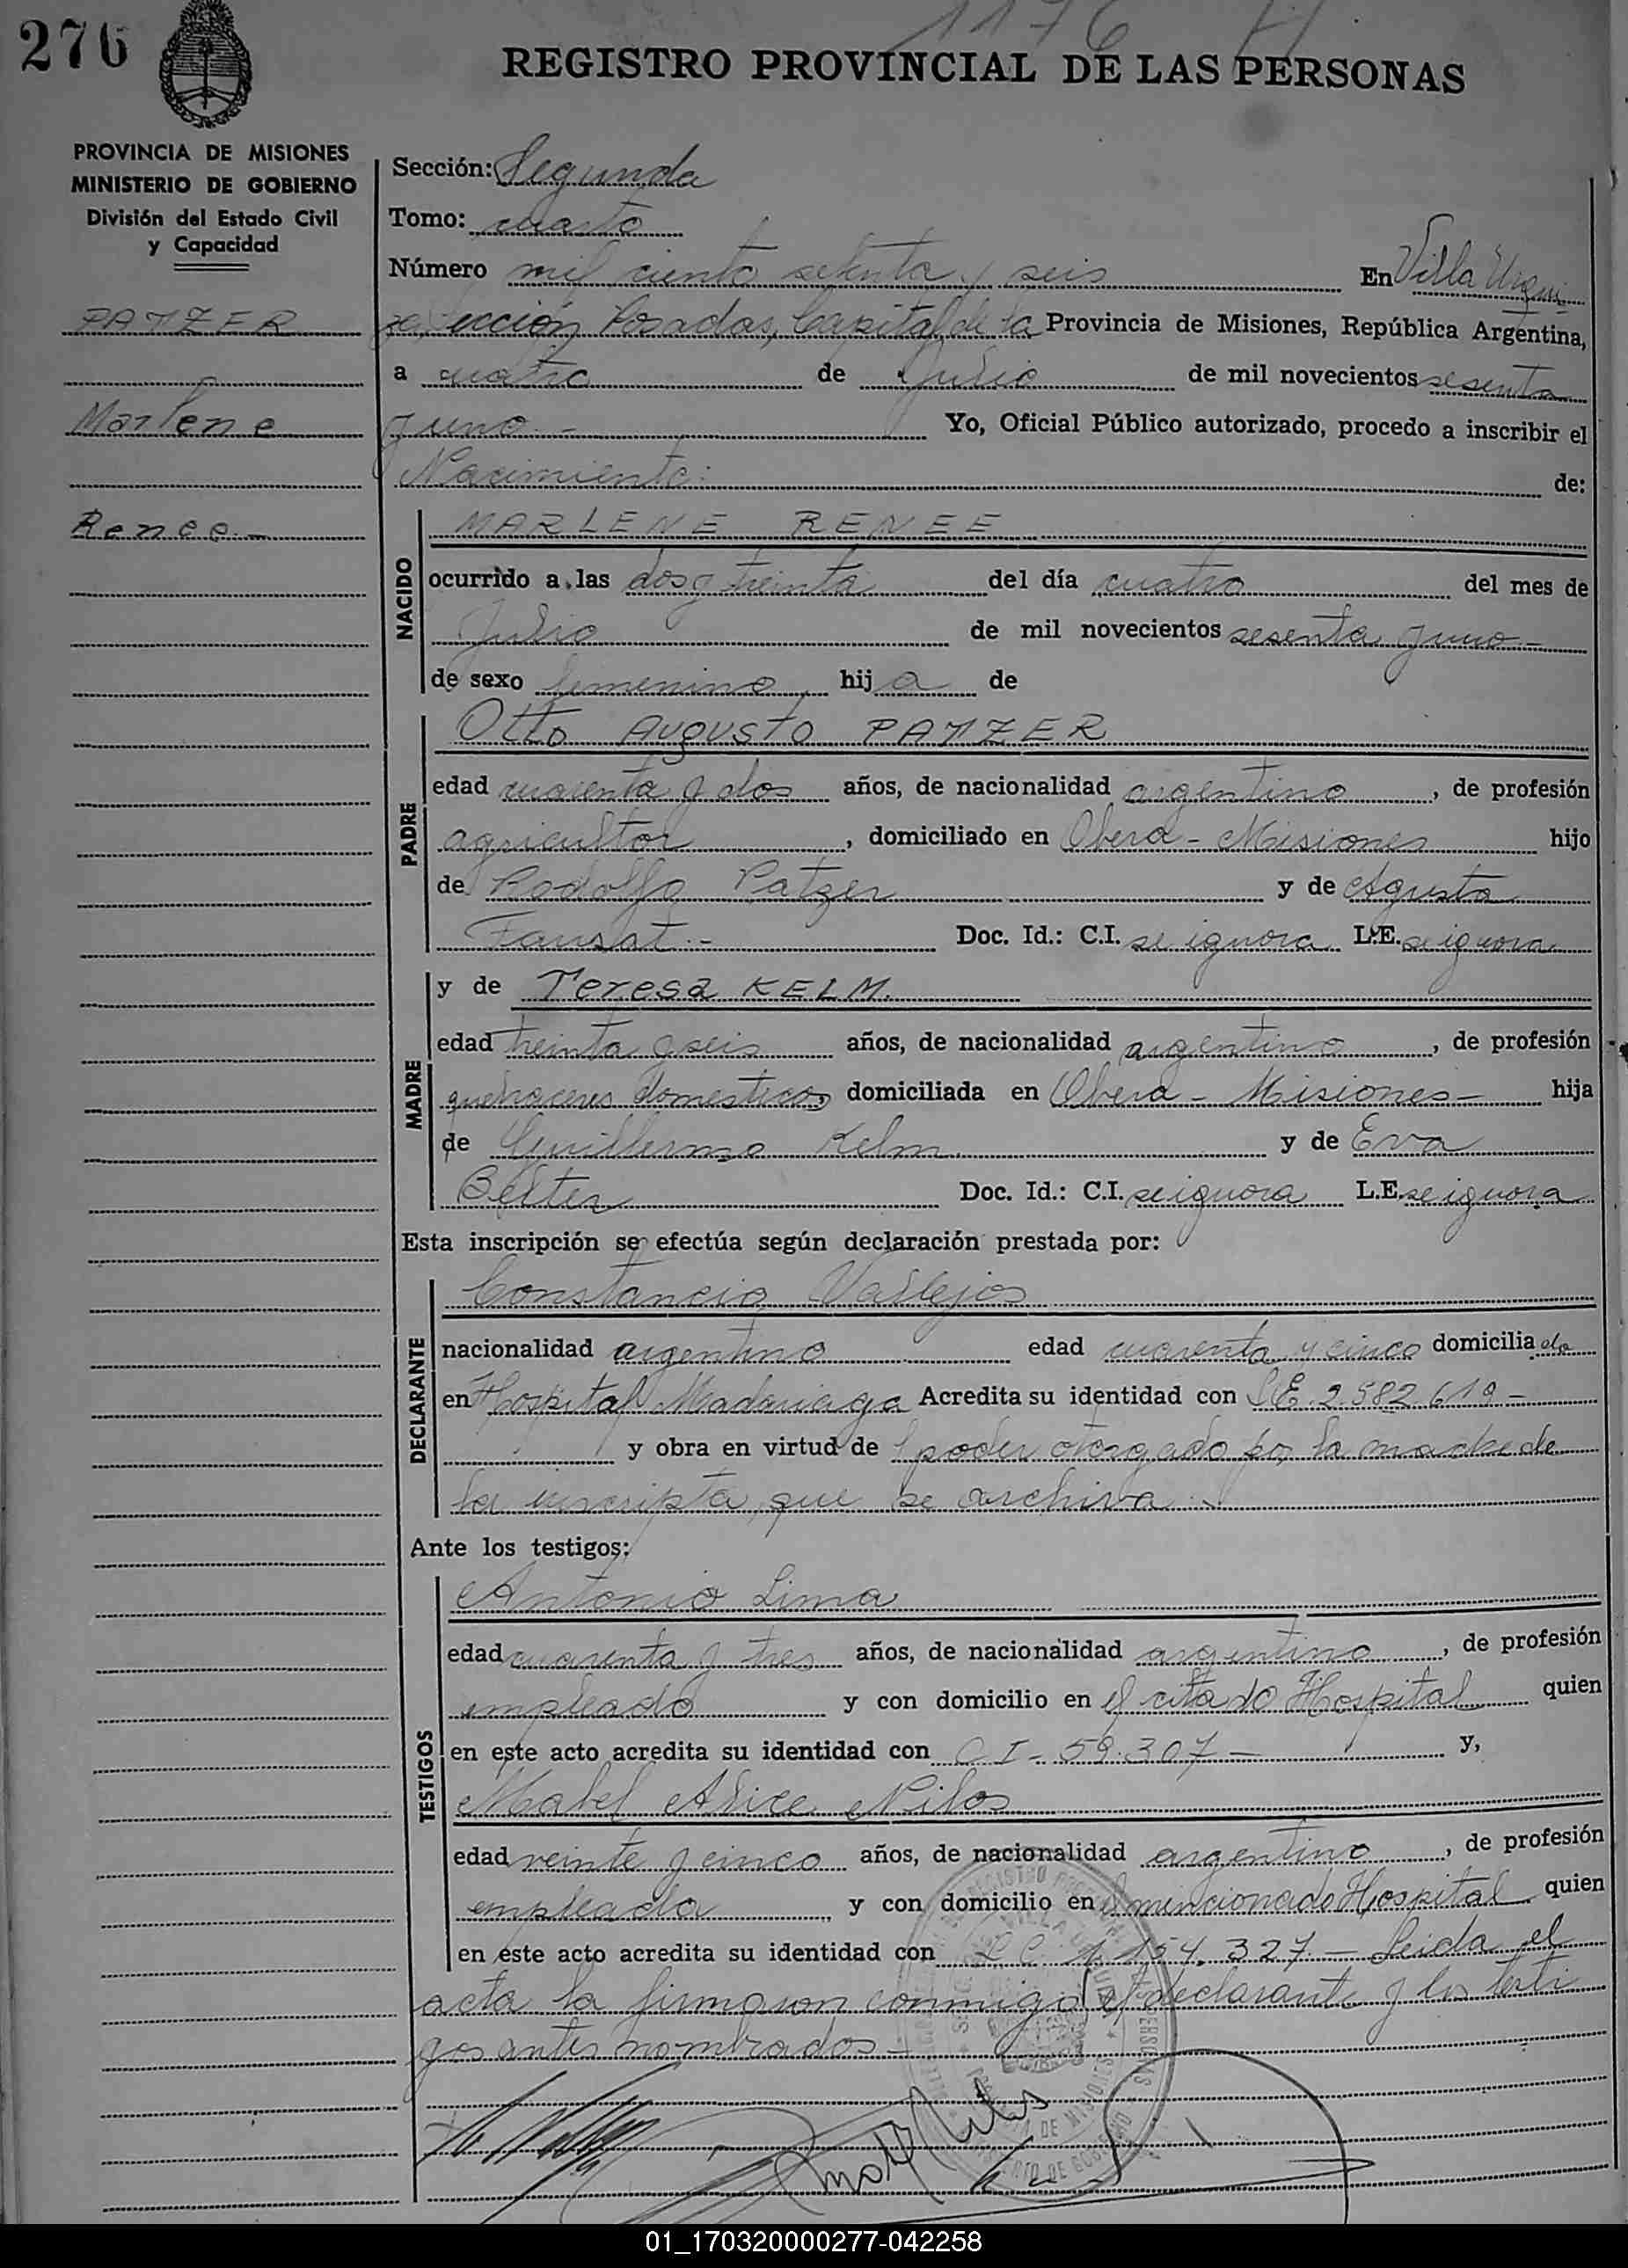 276
1176 H
REGISTRO PROVINCIAL DE LAS PERSONAS
PROVINCIA DE MISIONES
MINISTERIO DE GOBIERNO
División del Estado Civil
y Capacidad
PATZER
Marlene
Renee.-
Sección: Segunda
Tomo: cuarto
Número mil ciento setenta y seis En Villa Urqui
za, sección Posadas, Capital de la Provincia de Misiones, República Argentina,
a cuatro de Julio de mil novecientos sesenta
y uno.- Yo, Oficial Público autorizado, procedo a inscribir el
Nacimiento: de:
NACIDO
MARLENE RENEE
ocurrido a las dos y treinta del día cuatro del mes de
Julio de mil novecientos sesenta y uno.-
de sexo femenino hija de
PADRE
Otto Augusto PATZER
edad cuarenta y dos años, de nacionalidad argentino, de profesión
agricultor, domiciliado en Obera - Misiones hijo
de Rodolfo Patzer y de Agusta
Doc. Id.: C.I. se ignora L.E. se ignora
MADRE
y de Teresa KELM.
edad treinta y seis años, de nacionalidad argentino, de profesión
quehaceres domesticos, domiciliada en Obera - Misiones - hija
de Guillermo Kelm. y de Eva
Doc. Id.: C.I. se ignora L.E. se ignora
Esta inscripción se efectúa según declaración prestada por:
DECLARANTE
Constancio Vallejos
nacionalidad argentino edad cuarenta y cinco domiciliado
en Hospital Madariaga Acredita su identidad con L.E. 2.582.619 -
y obra en virtud de poder otorgado por la madre de
la inscripta, que se archiva.
Ante los testigos:
TESTIGOS
Antonio Lima
edad cuarenta y tres años, de nacionalidad argentino, de profesión
empleado y con domicilio en el citado Hospital quien
en este acto acredita su identidad con C I - 59.307 - y,
Mabel Alice Nilos
edad veinte y cinco años, de nacionalidad argentino, de profesión
empleada y con domicilio en el mencionado Hospital quien
en este acto acredita su identidad con L.C. 1.154.327.- Leida el
acta la firmaron conmigo el declarante y los testi
gos antes nombrados -
01_170320000277-042258